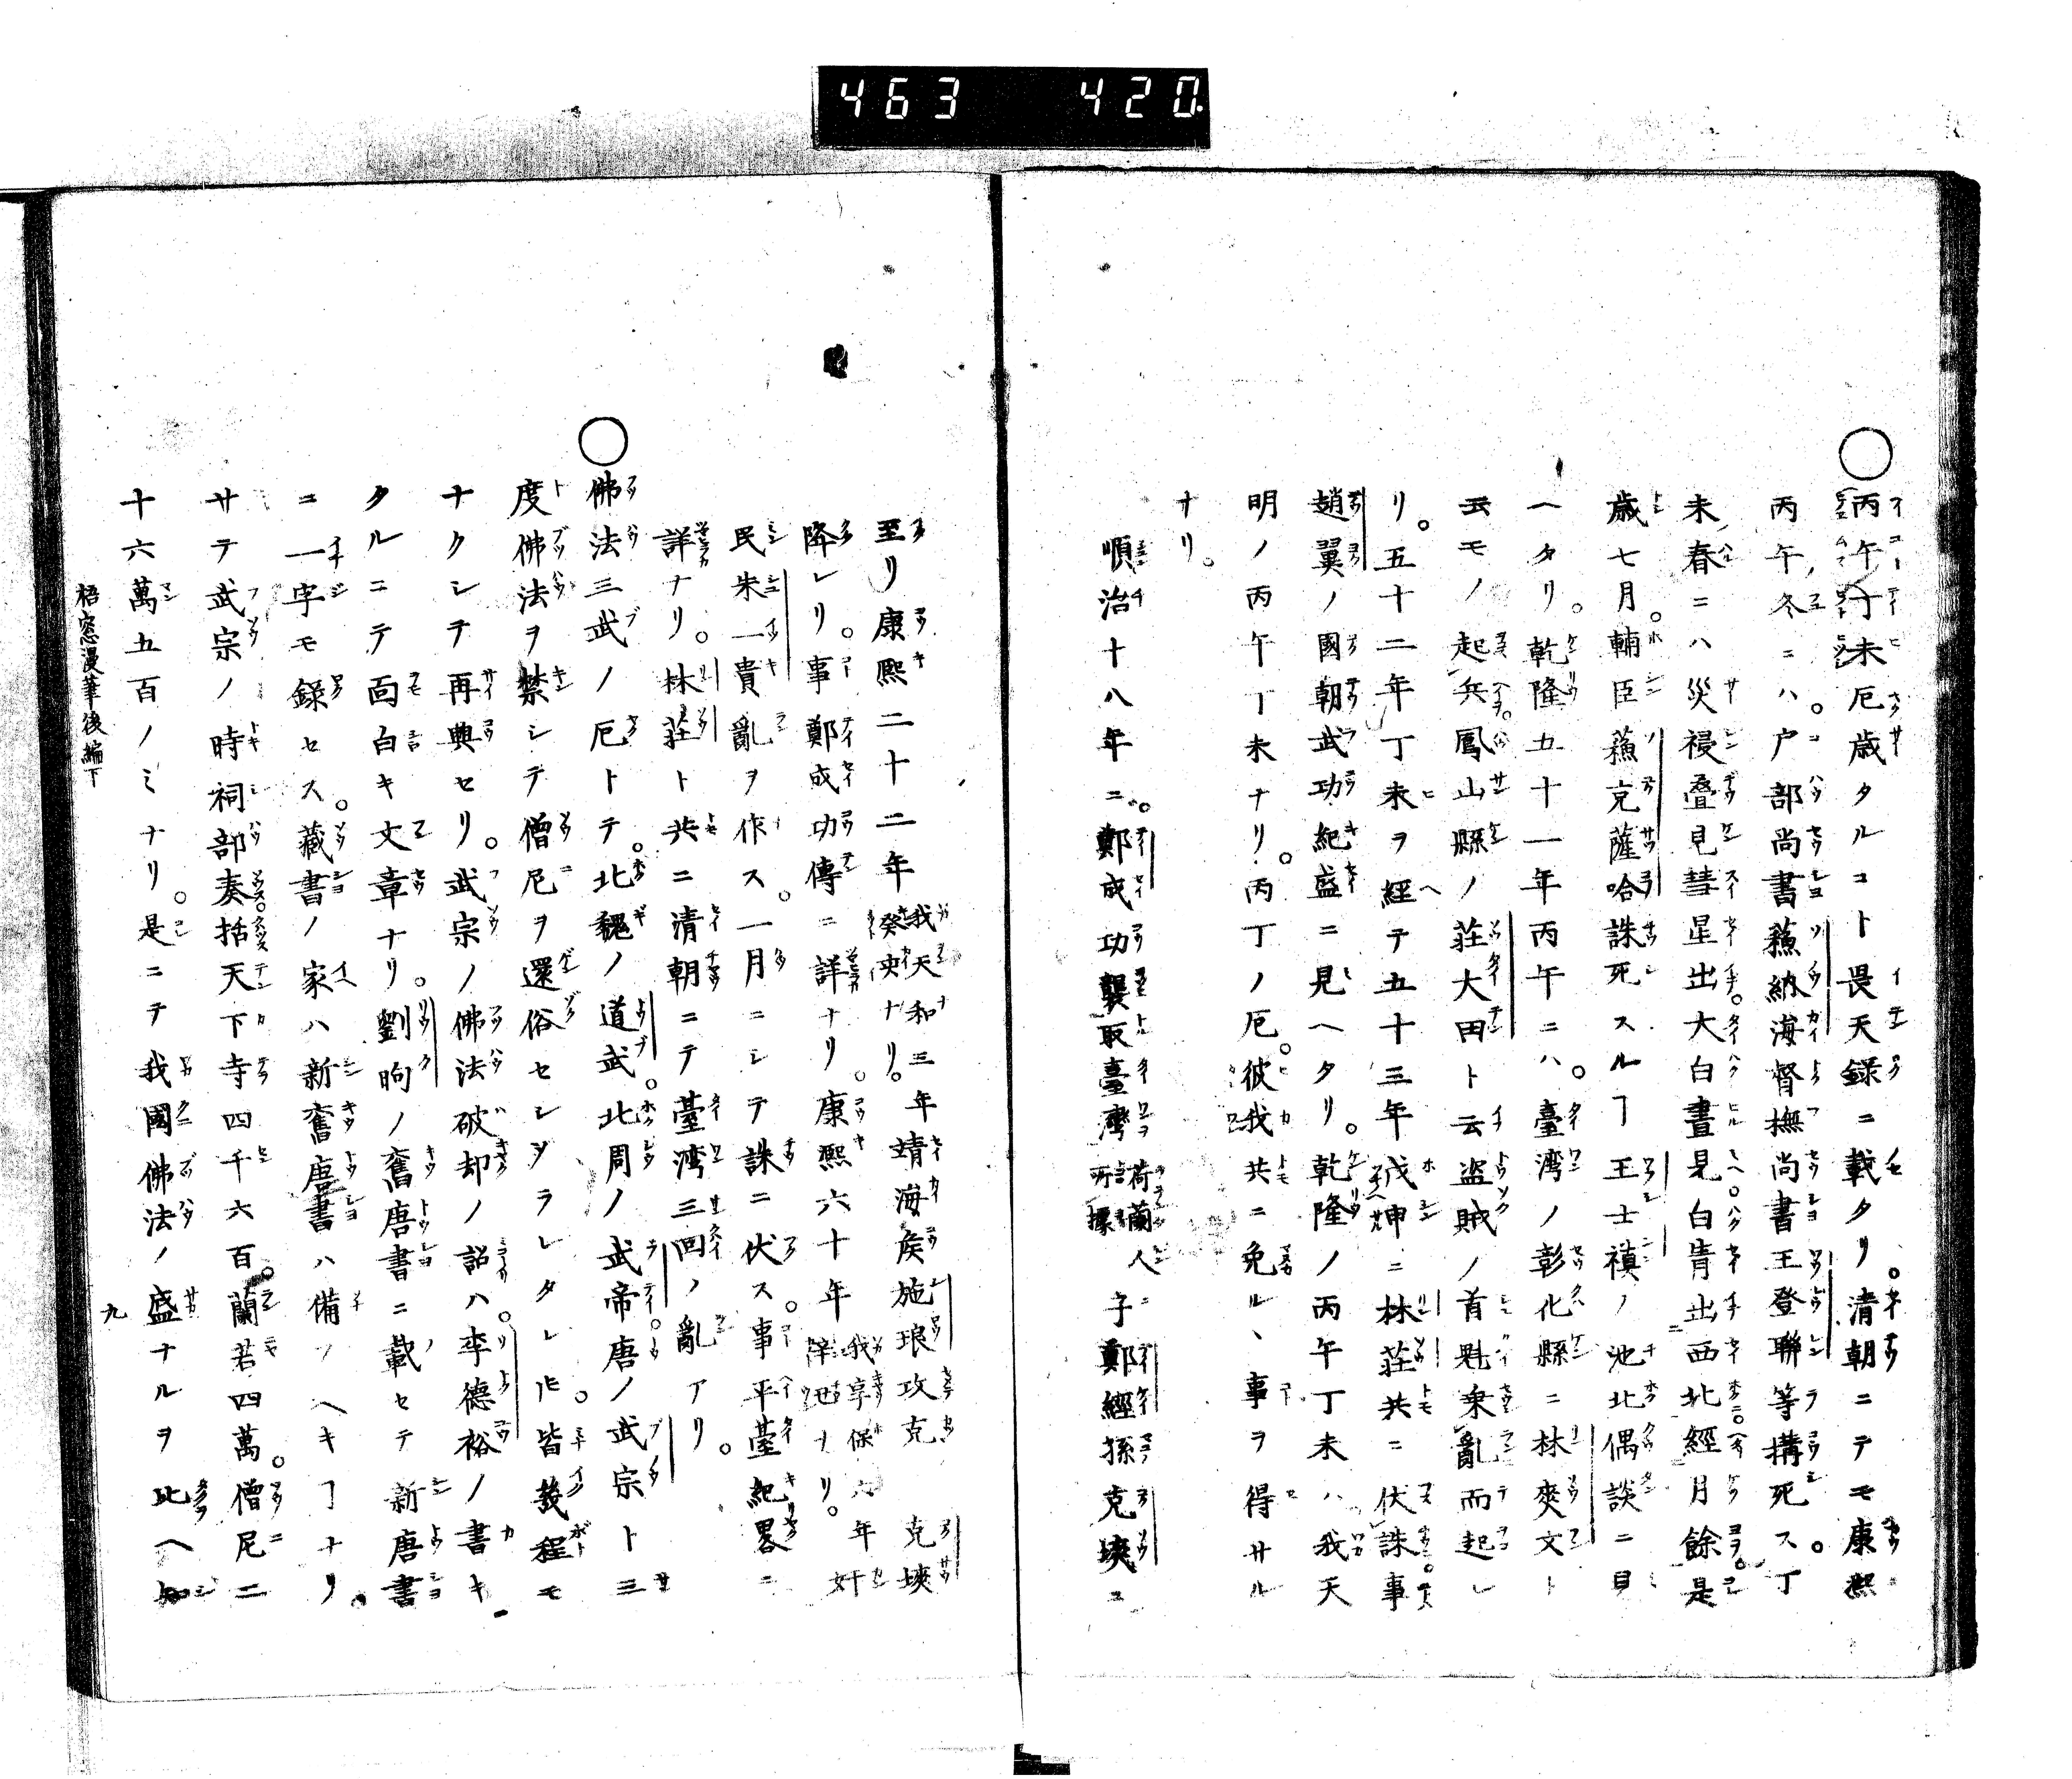 463 420
○丙午丁未厄歳タルコト畏天録ニ載タリ。清朝ニテモ康熙
丙午冬ニハ。戸部尚書蘓納海督撫尚書王登聯等搆死ス。丁
未春ニハ災祲疊見彗星出大白晝見白青出西北經月餘是
歳七月。輔臣蘓克薩哈誅死スルヿ王士禛ノ池北偶談ニ見
ヘタリ。乾隆五十一年丙午ニハ。臺湾ノ彰化縣ニ林爽文ト
云モノ起兵鳳山縣ノ莊大田ト云盗賊ノ首魁乗亂而起レ
リ。五十二年丁未ヲ經テ五十三年戊申ニ林莊共ニ伏誅事
趙翼ノ國朝武功紀盛ニ見ヘタリ。乾隆ノ丙午丁未ハ我天
明ノ丙午丁未ナリ。丙丁ノ厄。彼我共ニ免ルヽ事ヲ得サル
ナリ。
順治十八年ニ。鄭成功襲取臺灣荷蘭人所據子鄭經孫克塽ニ
至リ康熙二十二年我天和三年癸亥ナリ。靖海侯施琅攻克克塽
降レリ。事鄭成功傳ニ詳ナリ。康熙六十年我享保六年辛丑ナリ。奸
民朱一貴亂ヲ作ス。一月ニシテ誅ニ伏ス。事平臺紀畧ニ
詳ナリ。林莊ト共ニ清朝ニテ臺湾三回ノ亂アリ。
○佛法三武ノ厄トテ。北魏ノ道武。北周ノ武帝。唐ノ武宗ト三
度佛法ヲ禁シテ僧尼ヲ還俗セシメラレタレ𪜈。皆幾程モ
ナクシテ再興セリ。武宗ノ佛法破却ノ詔ハ。李德裕ノ書キ
タルニテ面白キ文章ナリ。劉昫ノ舊唐書ニ載セテ新唐書
ニ一字モ録セス。藏書ノ家ハ新舊唐書ハ備フヘキヿナリ。
サテ武宗ノ時祠部奏括天下寺四千六百。蘭若四萬。僧尼二
十六萬五百ノミナリ。是ニテ我國佛法ノ盛ナルヲ比ヘ知
梧窓漫筆後編下
九